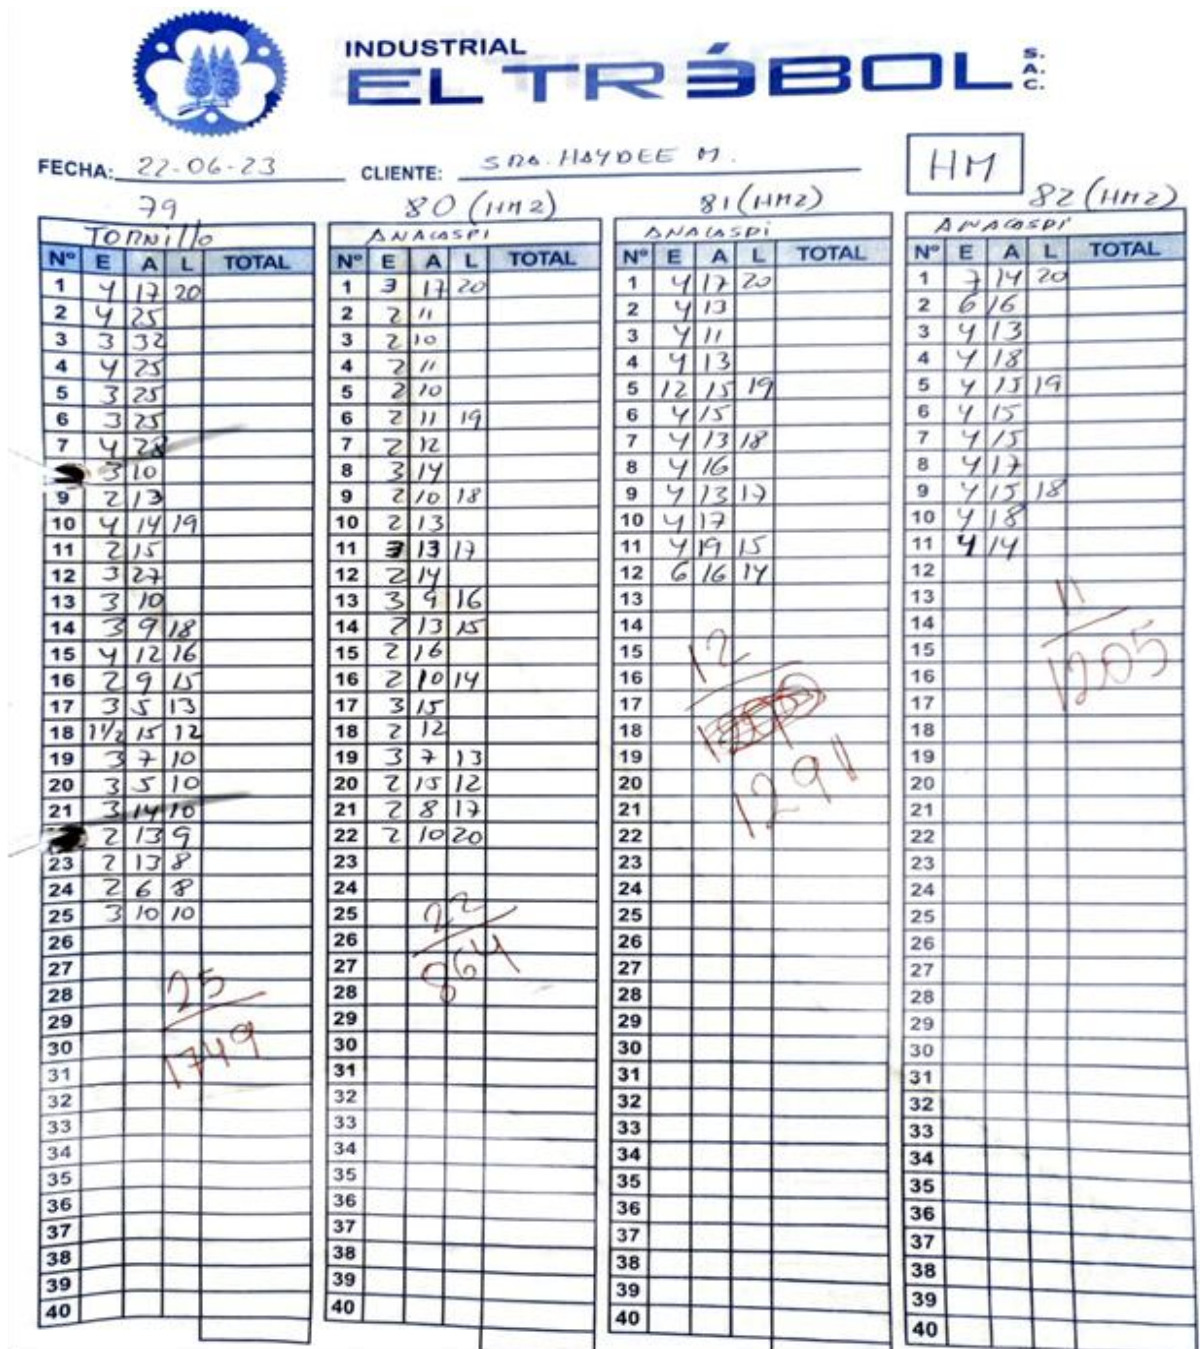 INDUSTRIAL
EL TRÉBOL S.A.C.
FECHA: 22-06-23 CLIENTE: SRA. HAYDEE M. HM
79
TORNillO
Nº E A L TOTAL
1 4 17 20
2 4 25
3 3 32
4 4 25
5 3 25
6 3 25
7 4 28
3 10
9 2 13
10 4 14 19
11 2 15
12 3 27
13 3 10
14 3 9 18
15 4 12 16
16 2 9 15
17 3 5 13
18 1 1/2 15 12
19 3 7 10
20 3 5 10
21 3 14 10
2 13 9
23 2 13 8
24 2 6 8
25 3 10 10
26
27
28
29
30
31
32
33
34
35
36
37
38
39
40
25
1749
80 (HM2)
ANACASPI
Nº E A L TOTAL
1 3 17 20
2 2 11
3 2 10
4 2 11
5 2 10
6 2 11 19
7 2 12
8 3 14
9 2 10 18
10 2 13
11 3 13 17
12 2 14
13 3 9 16
14 2 13 15
15 2 16
16 2 10 14
17 3 15
18 2 12
19 3 7 13
20 2 15 12
21 2 8 17
22 2 10 20
23
24
25
26
27
28
29
30
31
32
33
34
35
36
37
38
39
40
22
864
81 (HM2)
ANACASPI
Nº E A L TOTAL
1 4 17 20
2 4 13
3 4 11
4 4 13
5 12 15 19
6 4 15
7 4 13 18
8 4 16
9 4 13 17
10 4 17
11 4 19 15
12 6 16 14
13
14
15
16
17
18
19
20
21
22
23
24
25
26
27
28
29
30
31
32
33
34
35
36
37
38
39
40
12
1291
82 (HM2)
ANACASPI
Nº E A L TOTAL
1 7 14 20
2 6 16
3 4 13
4 4 18
5 4 15 19
6 4 15
7 4 15
8 4 17
9 4 15 18
10 4 18
11 4 14
12
13
14
15
16
17
18
19
20
21
22
23
24
25
26
27
28
29
30
31
32
33
34
35
36
37
38
39
40
11
1205